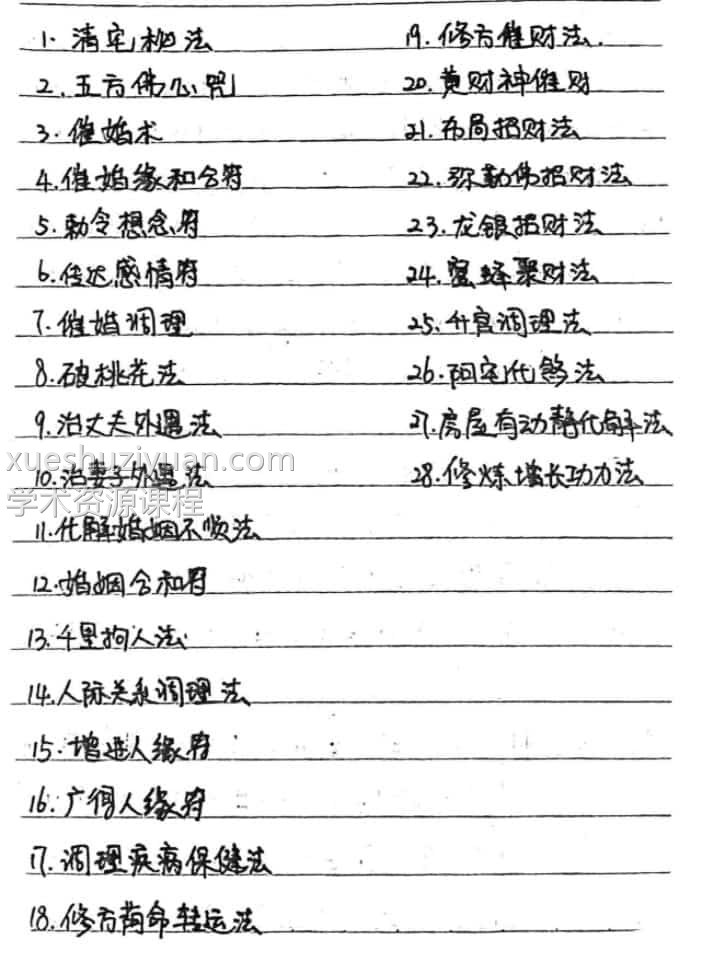 1. 清宅秘法
2. 五方佛心咒
3. 催婚术
4. 催婚缘和合符
5. 勅令想念符
6. 传达感情符
7. 催婚调理
8. 破桃花法
9. 治丈夫外遇法
xueshuziyuan.com
10. 治妻子外遇法
学术资源课程
11. 化解婚姻不顺法
12. 婚姻合和符
13. 千里拘人法
14. 人际关系调理法
15. 增进人缘符
16. 广得人缘符
17. 调理疾病保健法
18. 修方荷命转运法
19. 修方催财法.
20. 黄财神催财
21. 布局招财法
22. 弥勒佛招财法
23. 龙银招财法
24. 蜜蜂聚财法
25. 升官调理法
26. 阳宅化煞法
27. 房屋有动静化解法
28. 修炼增长功力法